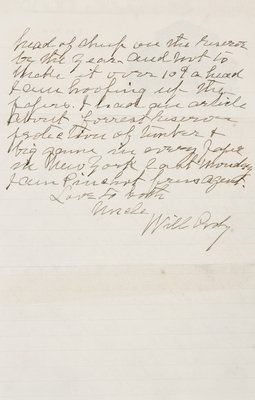 head of sheep on the reserve
by the year and not to
make it over 10¢ a head
I am hoofing up the
papers. I had an article
about forrest reserves
protection of timber &
big game in every paper
in New York last Monday
I am Pinchot press agent.
Love to both
Uncle
Will Cody